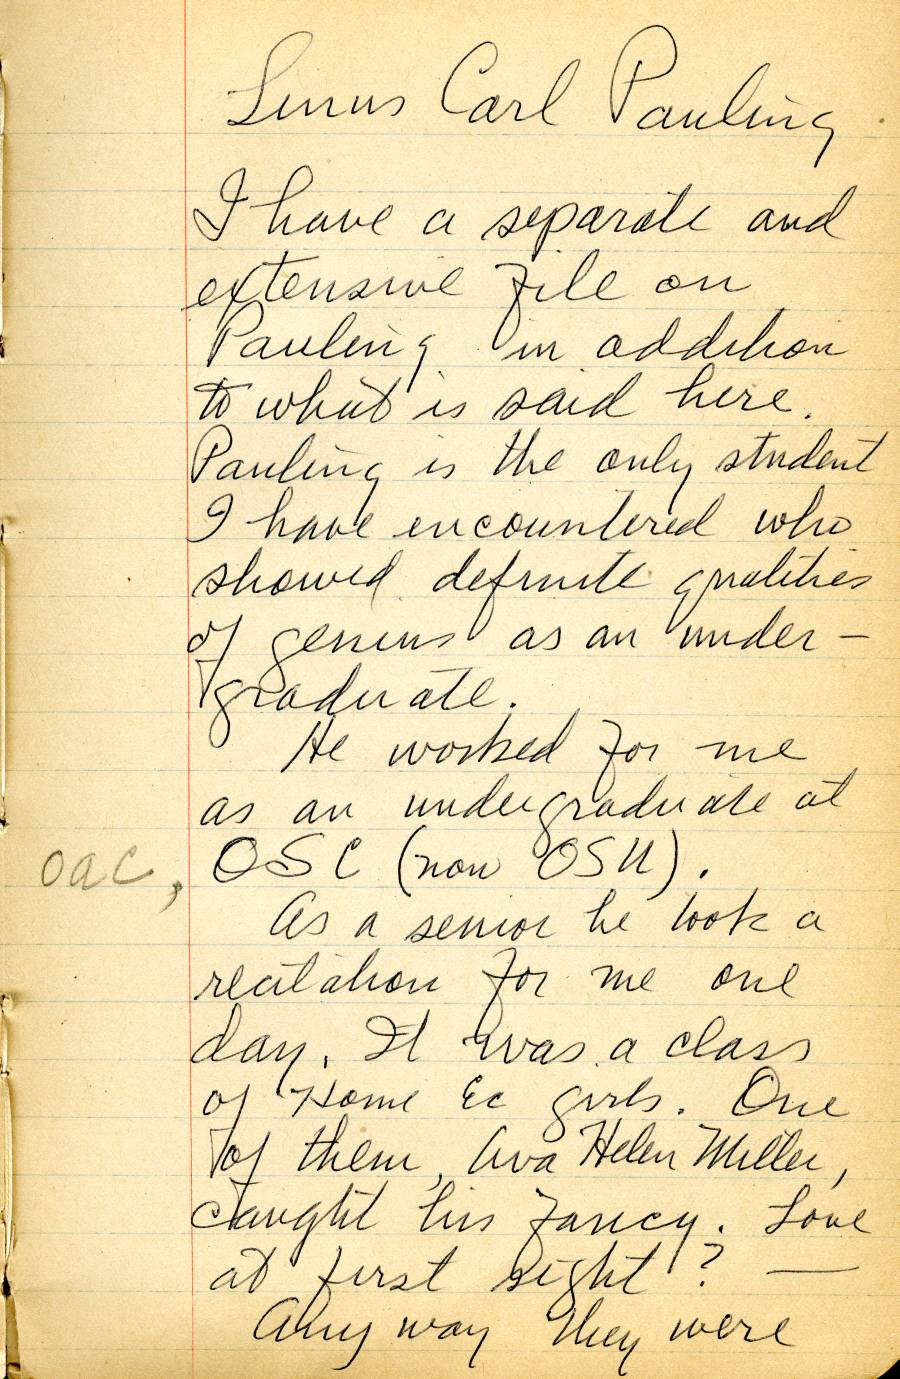 Linus Carl Pauling
I have a separate and
extensive file on
Pauling in addition
to what is said here.
Pauling is the only student
I have encountered who
showed definite qualities
of genius as an under-
graduate.
He worked for me
as an undergraduate at
OAC, OSC (now OSU).
As a senior he took a
recitation for me one
day. It was a class
of Home Ec girls. One
of them, Ava Helen Miller,
caught his fancy. Love
at first sight? —
Any way they were